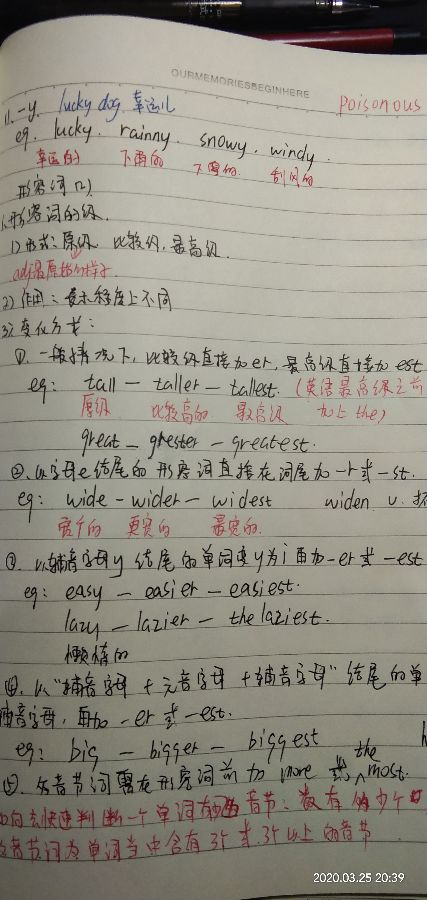 OURMEMORIESBEGINHERE
poisonous
11. -y. lucky dog 幸运儿
eg. lucky. rainny. snowy. windy.
幸运的 下雨的 下雪的. 刮风的
形容词(2)
1.形容词的级.
1) 形式: 原级 比较级, 最高级.
adj最原始的样子.
2) 作用: 表示程度上不同
3) 变化方式:
①. 一般情况下, 比较级直接加er, 最高级直接加est
eg: tall — taller — tallest. (英语最高级之前
原级 比较高的 最高级 加上the)
great — grester — greatest.
②. 以字母e结尾的形容词直接在词尾加-r或-st.
eg: wide — wider — widest widen v. 扩
宽个的 更宽的 最宽的.
③. 以辅音字母y结尾的单词变y为i再加-er或-est
eg: easy — easier — easiest.
lazy — lazier — the laziest.
懒惰的
④. 以"辅音字母+元音字母+辅音字母"结尾的单
辅音字母, 再加-er或-est.
eg: big — bigger — biggest h
⑤. 多音节词需在形容词前加 more 或 the most.
快速判断一个单词有 音节: 数有 少个
音节词为单词当中含有3个或3个以上的音节
2020.03.25 20:39